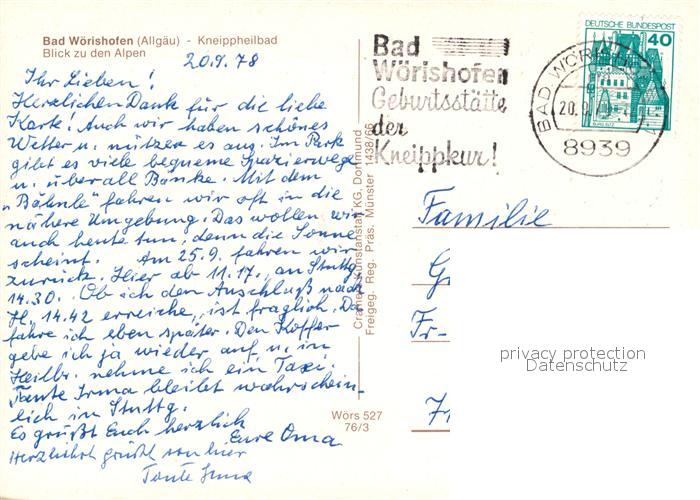 Bad Wörishofen (Allgäu) - Kneippheilbad
Blick zu den Alpen
20.9.78
Ihr Lieben!
Herzlichen Dank für die liebe
Karte! Auch wir haben schönes
Wetter u. nützen es aus. Im Park
gibt es viele bequeme Spazierwege
u. überall Bänke. Mit dem
"Bähnle" fahren wir oft in die
nähere Umgebung. Das wollen wir
auch heute tun, denn die Sonne
scheint. Am 25.9. fahren wir
zurück. Hier ab 11.17., an Stuttg.
14.30. Ob ich den Anschluß nach
H. 14.42 erreiche, ist fraglich. Da
fahre ich eben später. Den Koffer
gebe ich ja wieder auf, u. in
Heilbr. nehme ich ein Taxi.
Tante Irma bleibt wahrschein-
lich in Stuttg.
Es grüßt Euch herzlich
Eure Oma
Herzlichst grüßt von hier
Tante Irma
Cramers Kunstanstalt KG, Dortmund
Freigeg. Reg. Präs. Münster 1438/66
Wörs 527
76/3
Bad
Wörishofen
Geburtsstätte
der
Kneippkur!
DEUTSCHE BUNDESPOST
40
BAD WÖRISHOFEN
20.9.
8939
Familie
G
Fr-
privacy protection
Datenschutz